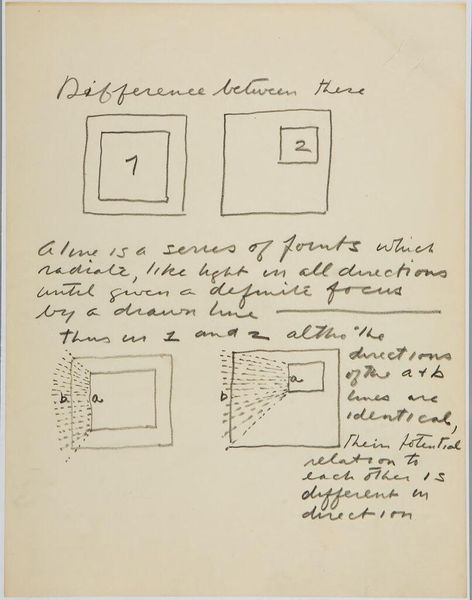 Difference between these
1
2
A line is a series of points which
radiate, like light in all directions
until given a definite focus
by a drawn line
thus in 1 and 2 altho' the
directions
of the a + b
lines are
identical,
their potential
relation to
each other is
different in
direction
b a
b a